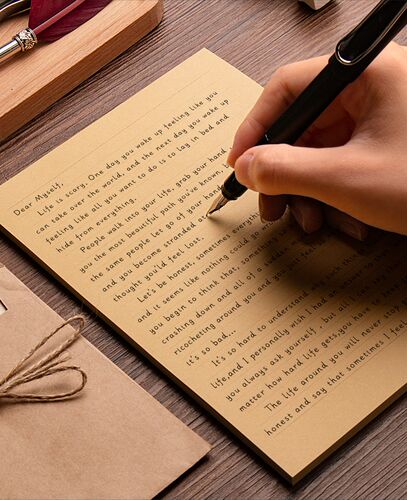 Dear Myself,
Life is scary. One day you wake up feeling like you
can take over the world, and the next day you wake up
feeling like all you want to do is to lay in bed and
hide from everything.
People walk into your life, grab your hand,
you the most beautiful path you've known,
the same people let go of your hand
and you become stranded
thought you'd feel lost.
Let's be honest, sometimes everything
and it seems like nothing could go
you begin to think that something
crashing down and all of a
ricocheting around you and you
it's so bad...
It's so hard to understand
life, and I personally wish I had an
you always ask yourself - but all
matter how hard life gets, you have to
The life around you will never stop
honest and say that sometimes I feel